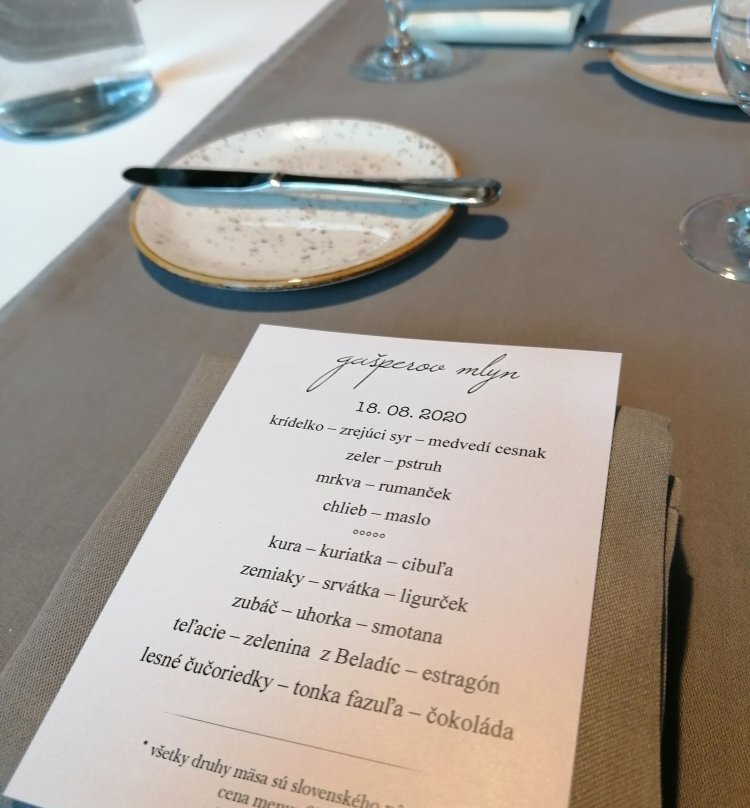 gašperov mlyn
18. 08. 2020
krídelko – zrejúci syr – medvedí cesnak
zeler – pstruh
mrkva – rumanček
chlieb – maslo
°°°°°
kura – kuriatka – cibuľa
zemiaky – srvátka – ligurček
zubáč – uhorka – smotana
teľacie – zelenina z Beladíc – estragón
lesné čučoriedky – tonka fazuľa – čokoláda
* všetky druhy mäsa sú slovenského
cena menu